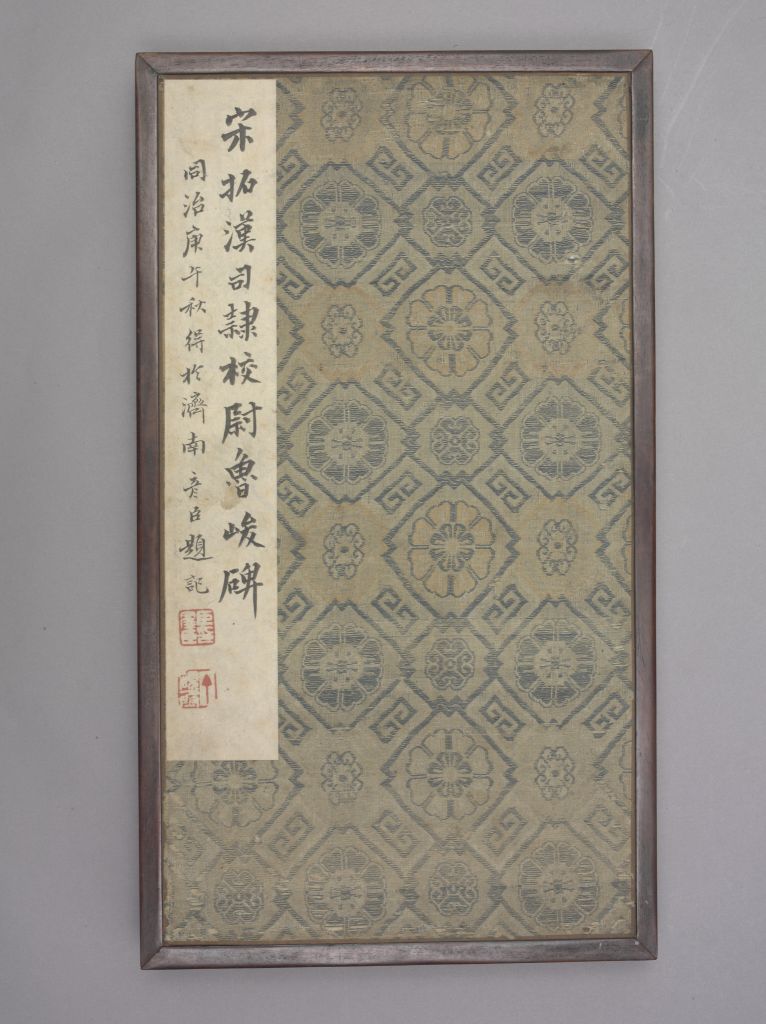 宋拓漢司隸校尉魯峻碑
同治庚午秋得於濟南彥臣題記